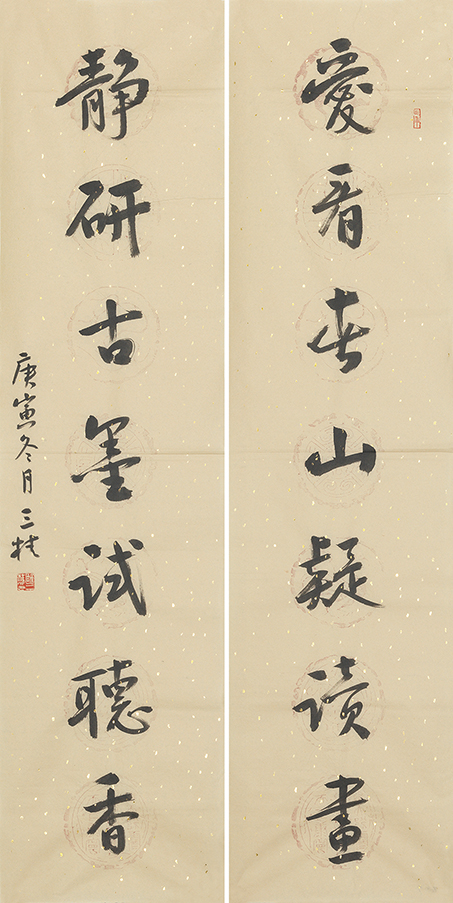 愛看春山疑读畫
静研古墨试聽香
庚寅冬月 三